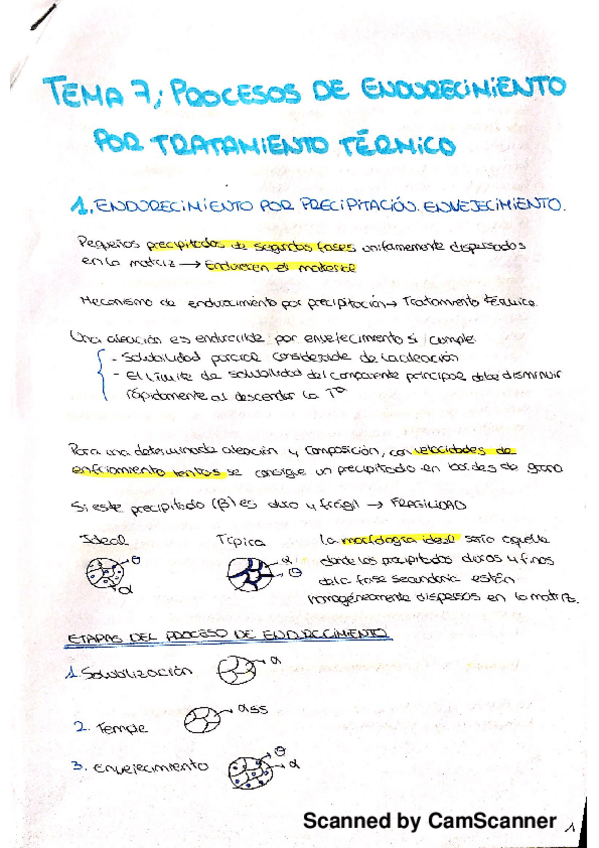 TEMA 7; PROCESOS DE ENDURECIMIENTO
POR TRATAMIENTO TÉRMICO
1. ENDURECIMIENTO POR PRECIPITACIÓN. ENVEJECIMIENTO.
Pequeños precipitados de segundas fases uniformemente dispersados
en la matriz → Endurecen el material
Mecanismo de endurecimiento por precipitación → Tratamiento térmico.
Una aleación es endurecible por envejecimiento si cumple
- Solubilidad parcial considerable de la aleación
- El límite de solubilidad del componente principal debe disminuir
rápidamente al descender la Tª
Para una determinada aleación y composición, con velocidades de
enfriamiento lentos se consigue un precipitado en bordes de grano
Si este precipitado (β) es duro y frágil → FRAGILIDAD
Ideal
θ
α
Típica
α
θ
La morfología ideal sería aquella
donde los precipitados duros y finos
de la fase secundaria estén
homogéneamente dispersos en la matriz.
ETAPAS DEL PROCESO DE ENDURECIMIENTO
1. Solubilización → α
2. Temple → αss
3. Envejecimiento → θ
→ α
Scanned by CamScanner
1